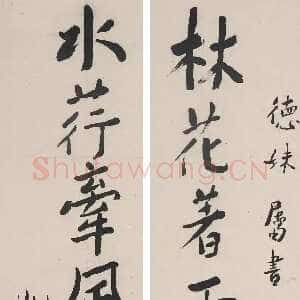 德妹屬書
林花著
水荇牽風
Shufawang.CN